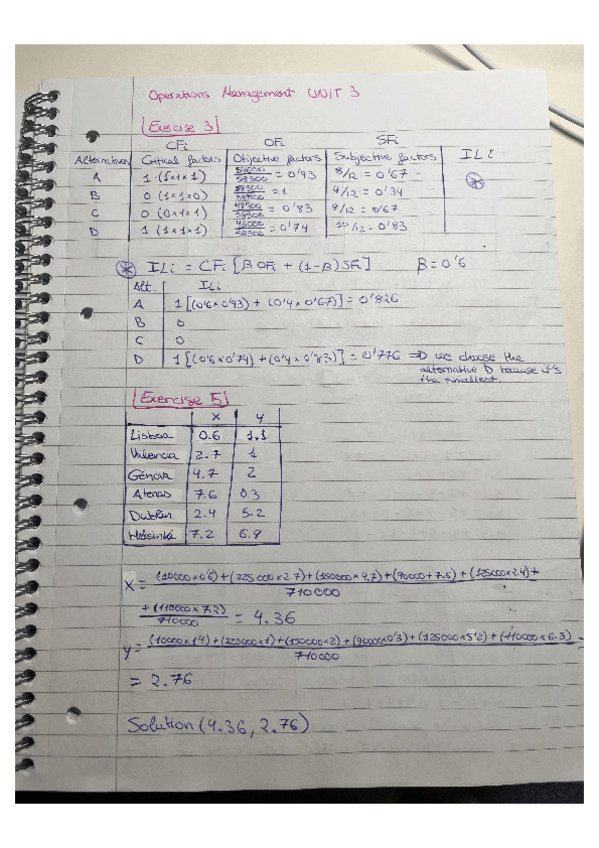 Operations Management UNIT 3
Exercise 3
CFi OFi SFi
Alternatives Critical factors Objective factors Subjective factors ILi
A 1 (1x1x1) = 0'93 8/12 = 0'67
B 0 (1x1x0) = 1 4/12 = 0'34
C 0 (0x1x1) = 0'83 8/12 = 0'67
D 1 (1x1x1) = 0'74 10/12 = 0'83
* ILi = CFi [B OFi + (1-B) SFi] B = 0'6
Alt. ILi
A 1 [(0'6x0'93) + (0'4x0'67)] = 0'826
B 0
C 0
D 1 [(0'6x0'74) + (0'4x0'83)] = 0'776 => we choose the
alternative D because it's
the smallest.
Exercise 5
x y
Lisboa 0.6 1.1
Valencia 2.7 1
Génova 4.7 2
Atenas 7.6 0.3
Dublín 2.4 5.2
Helsinki 7.2 6.8
x = (10000x0'6) + (225000x2.7) + (150000x4.7) + (90000+7.6) + (125000x2.4) +
710000
+ (110000x7.2)
710000 = 4.36
y = (10000x1'4) + (225000x1) + (150000x2) + (90000x0'3) + (125000x5'2) + (110000x6.3) =
710000
= 2.76
Solution (4.36, 2.76)